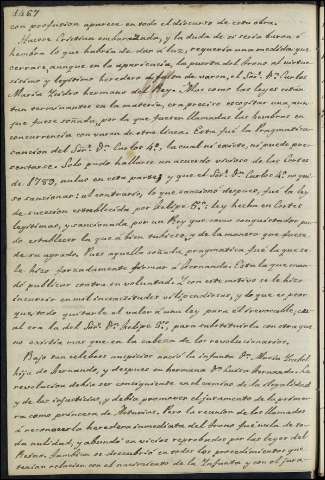 1467
con profusion aparece en todo el discurso de esta obra.
Nueva Cristina embarazada, y la duda de si seria baron ó
hembra lo que habria de dar á luz, requeria una medida que
cerrase, aunque en la apariencia, la puerta del trono al virtuo-
sisimo y legitimo heredero á falta de varon, el Sor. Dn. Carlos
Maria Isidro hermano del Rey. Mas como las leyes están
tan terminantes en la materia, era preciso escogitar una, aun-
que fuese soñada, por la que fuesen llamadas las hembras en
concurrencia con varon de otra linea. Esta fué la Pragmatica-
sancion del Sor. Dn. Carlos 4º, la cual ni existe, ni puede pre-
sentarse. Solo pudo hallarse un acuerdo vicioso de las Cortes
de 1789, nulas en esta parte, y que el Sor. Dn. Carlos 4º no qui-
so sancionar: al contrario, lo que sancionó despues, fué la ley
de sucesion establecida por Felipe 5º: ley hecha en Cortes
legitimas, y sancionada por un Rey que como conquistador pu-
do establecer la que á bien tubiese, y de la manera que fuese
de su agrado. Pues aquella soñada pragmatica fué la que se
le hizo forzadamente firmar á Fernando. Esta la que man-
dó publicar contra su voluntad. Y con este motivo se le hizo
incurrir en mil inconsecuencias vilipendiosas, y lo que es peor
que todo quitarle el valor á una ley para él irrevocable, cu-
al era la del Sor. Dn. Felipe 5º, para substituirla con otra que
no existia mas que en la cabeza de los revolucionarios.
Bajo tan celebres auspicios nació la infanta Dª. Maria Isabel
hija de Fernando, y despues su hermana Dª. Luisa Fernanda. La
revolucion debia ser consiguiente en el camino de la ilegalidad
y de las injusticias, y debia promover el juramento de la prime-
ra como princesa de Asturias. Pero la reunion de los llamados
á reconocer la heredera inmediata del trono fué nula de to-
da nulidad, y abundó en vicios reprobados por las leyes del
Reino. Tambien se descubrió en todos los procedimientos que
tenian relacion con el nacimiento de la Infanta y con el jura-